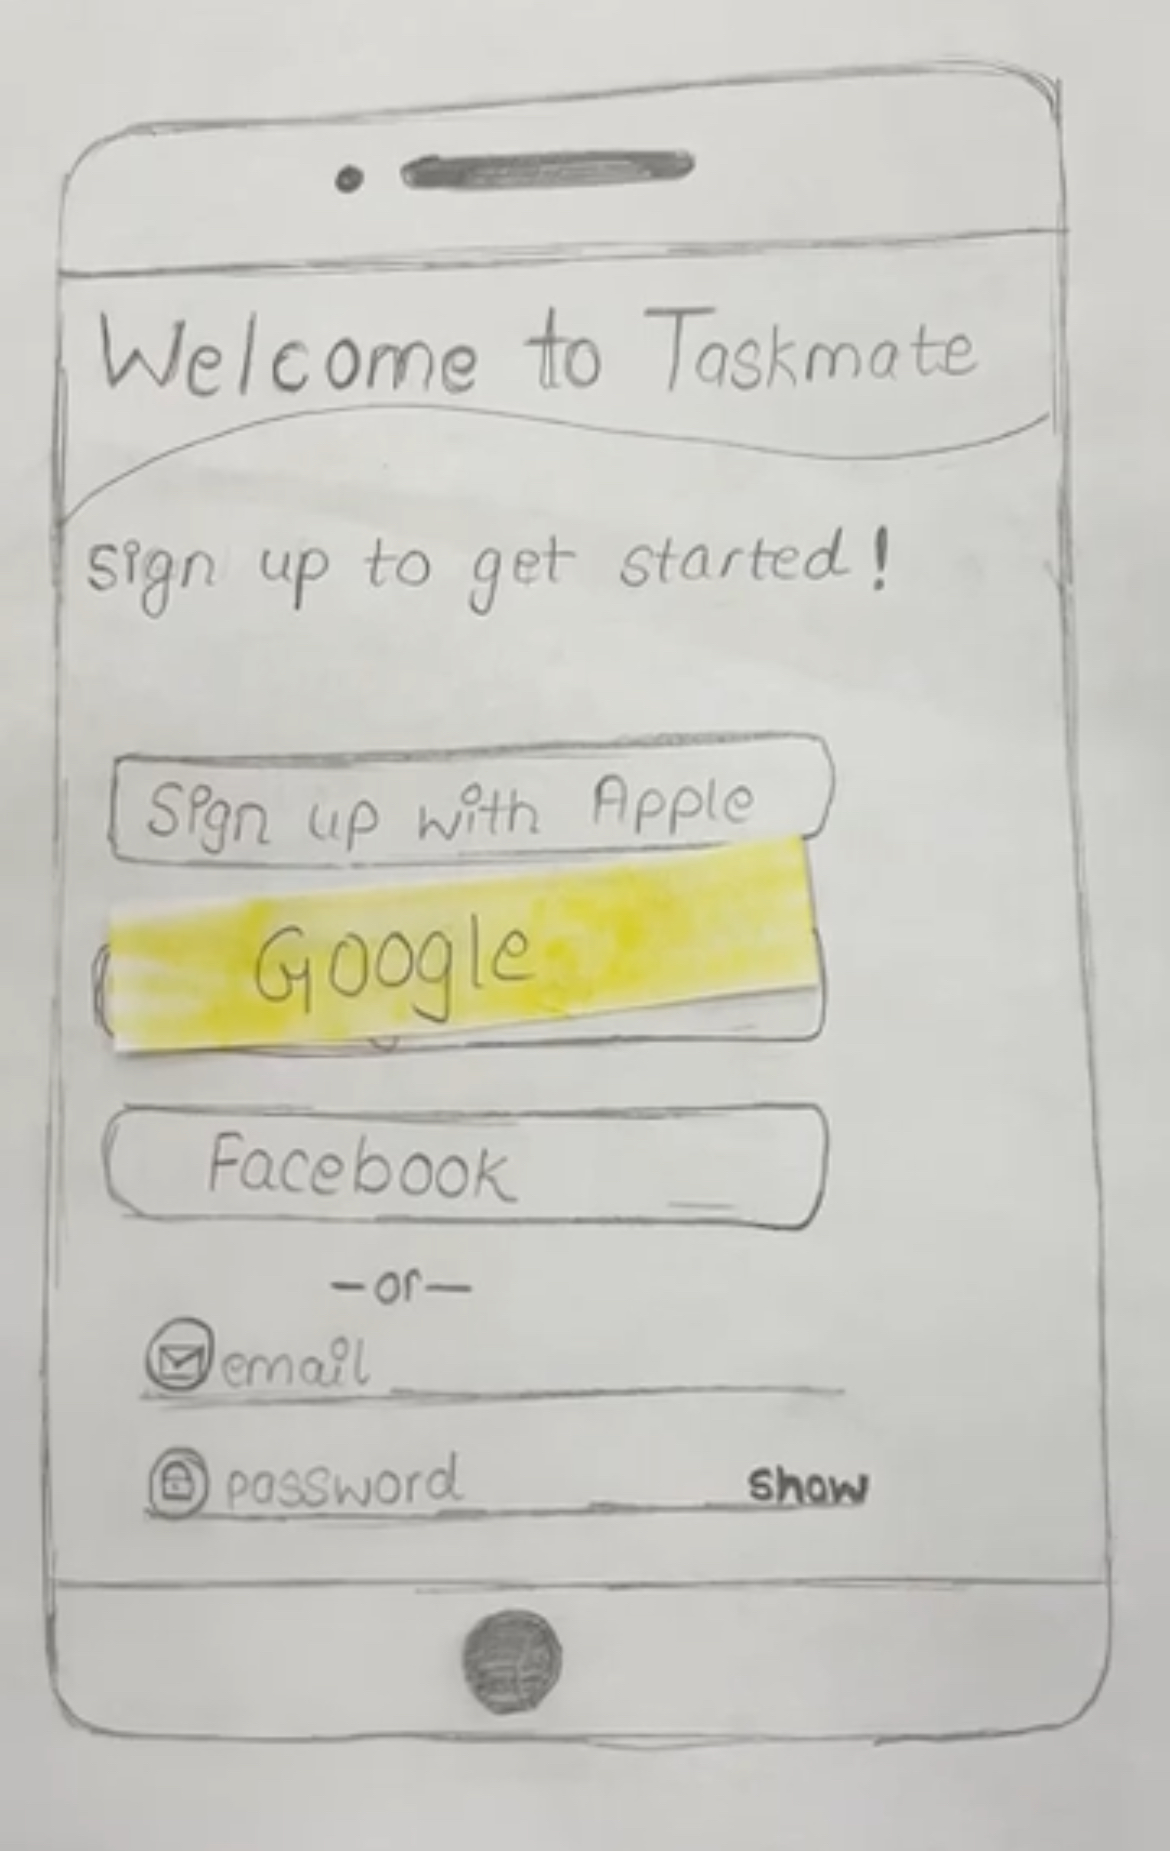 Welcome to Taskmate
sign up to get started!
Sign up with Apple
Google
Facebook
-or-
email
password show